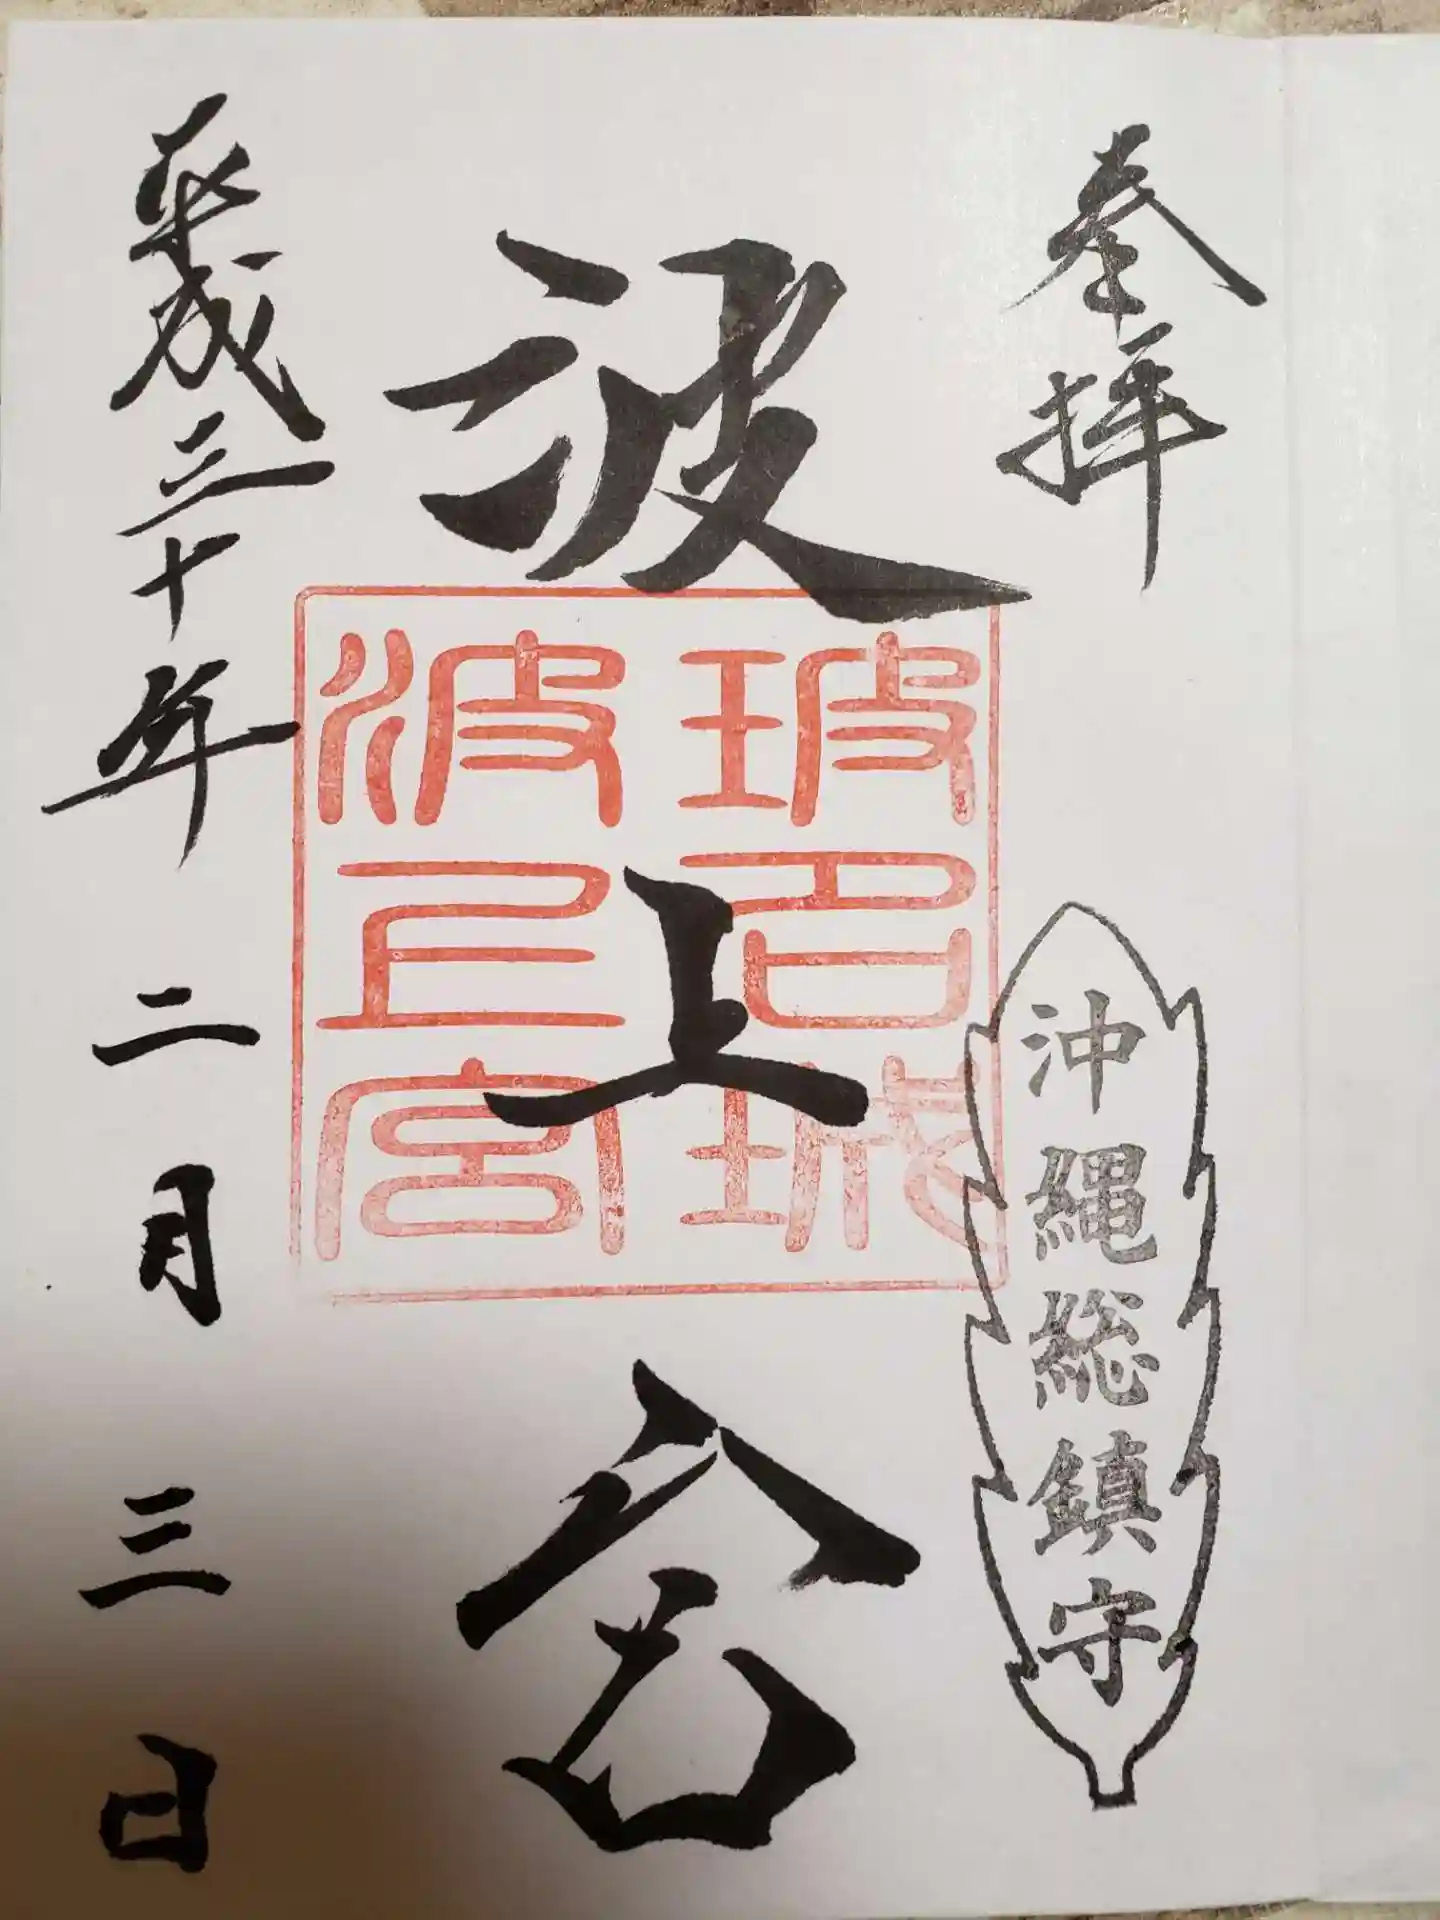 奉拝
沖縄総鎮守
波上宮
玻名珹
波上宮
平成三十年二月三日